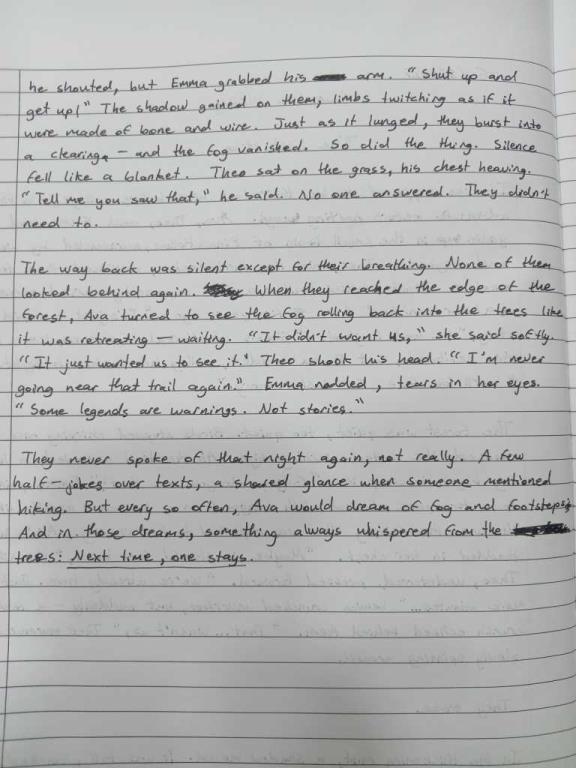 he shouted, but Emma grabbed his arm. "Shut up and
get up!" The shadow gained on them, limbs twitching as if it
were made of bone and wire. Just as it lunged, they burst into
a clearing. – and the fog vanished. So did the thing. Silence
fell like a blanket. Theo sat on the grass, his chest heaving.
"Tell me you saw that," he said. No one answered. They didn't
need to.
The way back was silent except for their breathing. None of them
looked behind again. When they reached the edge of the
forest, Ava turned to see the fog rolling back into the trees like
it was retreating – waiting. "It didn't want us," she said softly.
"It just wanted us to see it." Theo shook his head. "I'm never
going near that trail again." Emma nodded, tears in her eyes.
"Some legends are warnings. Not stories."
They never spoke of that night again, not really. A few
half-jokes over texts, a shared glance when someone mentioned
hiking. But every so often, Ava would dream of fog and footsteps.
And in those dreams, something always whispered from the
trees: Next time, one stays.